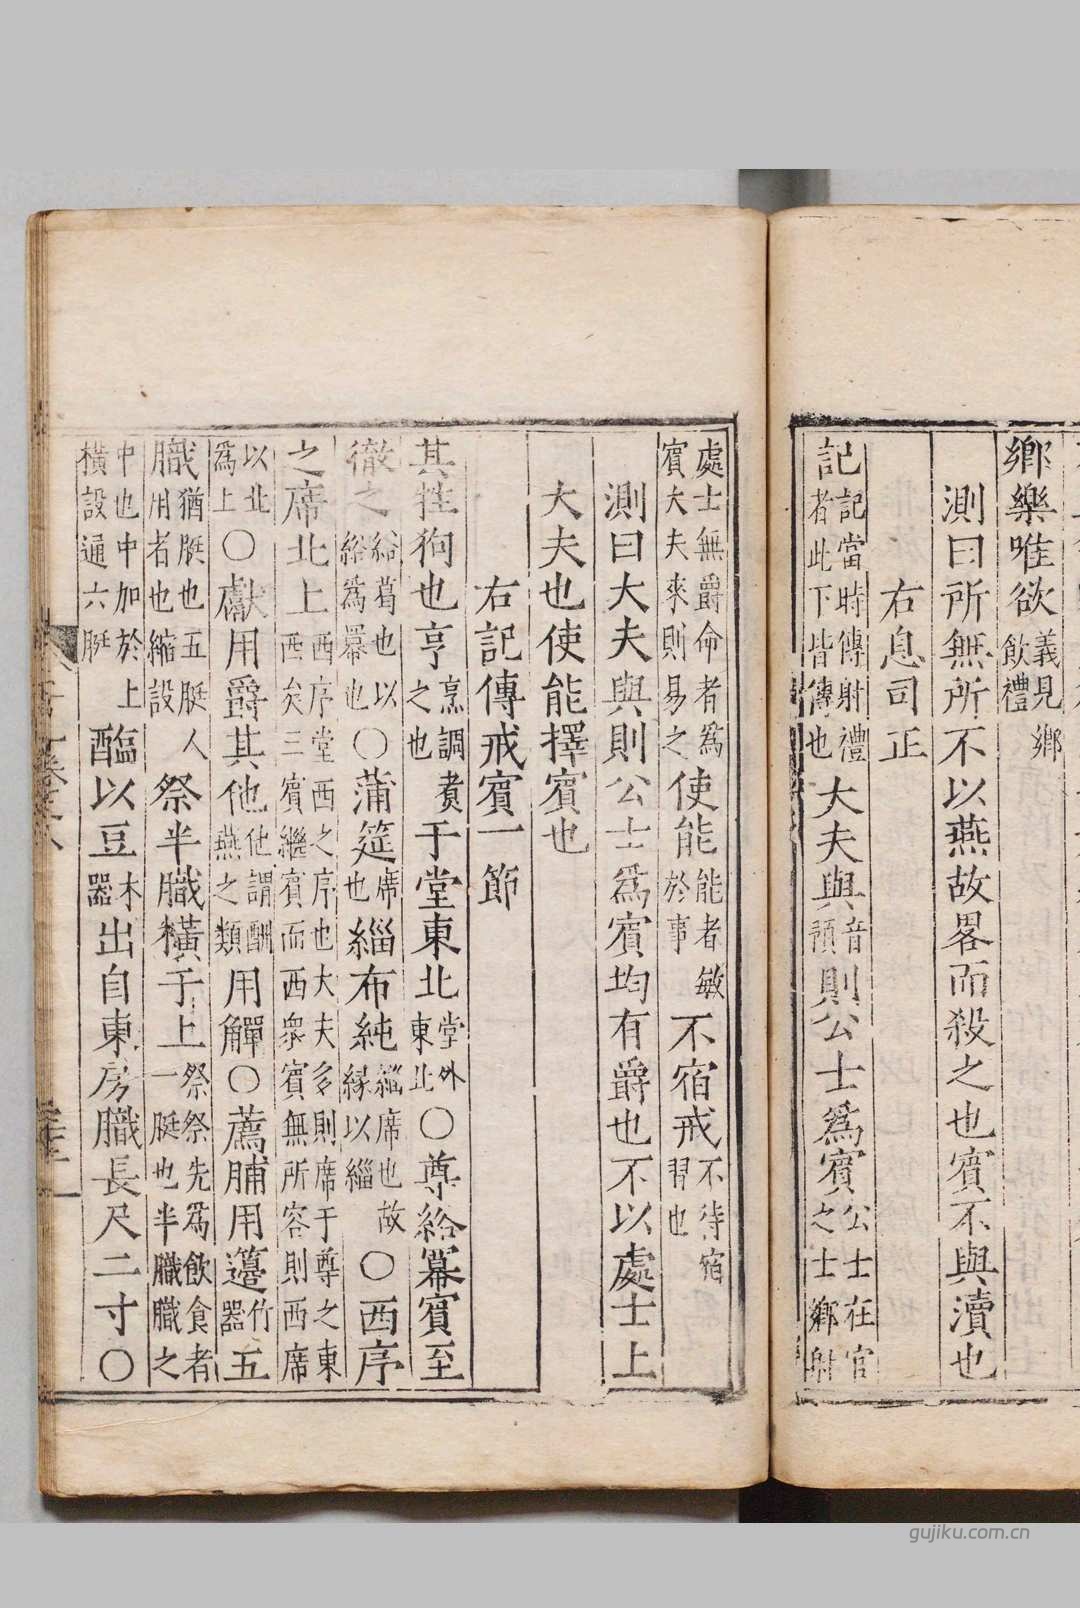 鄉樂唯欲義見鄉飲禮
測曰所無所不以燕故畧而殺之也賓不與瀆也
右息司正
記記當時傳射禮者此下皆傳也大夫與音預則公士爲賓公士在官之士鄉射
處士無爵命者爲賓大夫來則易之使能能者敏於事不宿戒不待宿習也
測曰大夫與則公士爲賓均有爵也不以處士上
大夫也使能擇賓也
右記傳戒賓一節
其牲狗也亨烹調之也煮于堂東北堂外東北○尊綌冪賓至
徹之綌葛也以綌爲冪也○蒲筵席也緇布純緇席也故緣以緇○西序
之席北上西序堂西之序也大夫多則席于尊之東西矣三賓繼賓而西衆賓無所容則西席
以北爲上○獻用爵其他他謂酬燕之類用觶○薦脯用籩竹器五
膱猶脡也五脡人用者也縮設祭半膱橫于上祭祭先爲飲食者一脡也半膱膱之
中也中加於上橫設通六脡醢以豆木器出自東房膱長尺二寸○
gujiku.com.cn